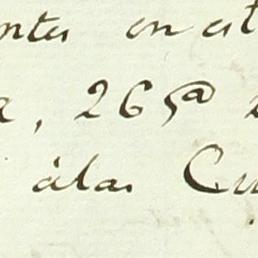 ntes en est
, 26 5@
álas Cu